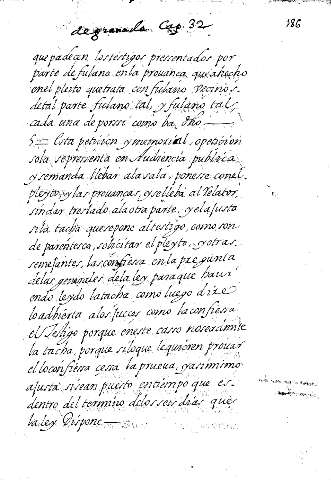 de granada. Cap. 32
186
que padecen los testigos presentados por
parte de fulano en la prouanca, que a hecho
en el pleito que trata con fulano vecinos
de tal parte fulano tal, y fulano tal
cada una de por si como ba dho
5 Esta peticion y memorial, o peticion
sola, se presenta en Audiencia publica
y se manda llebar a la sala, ponese con el
pleyto, y las prouancas, y se lleba al Relator,
sin dar treslado a la otra parte, y el ajusta
si la tacha que se pone al testigo, como son
de parentesco, solicitar el pleyto, y otras
semejantes, las confiesa en la pregunta
de las generales de la ley para que haui
endo leydo la tacha como luego dize
lo adbierta a los jueces como la confiesa
el testigo porque en este casso no se admite
la tacha, porque si lo que le quieren prouar
el lo confiesa cesa la prueua, y assimismo
ajusta, si sean puesto en tiempo que es
dentro del termino de los seis dias que
la ley dispone